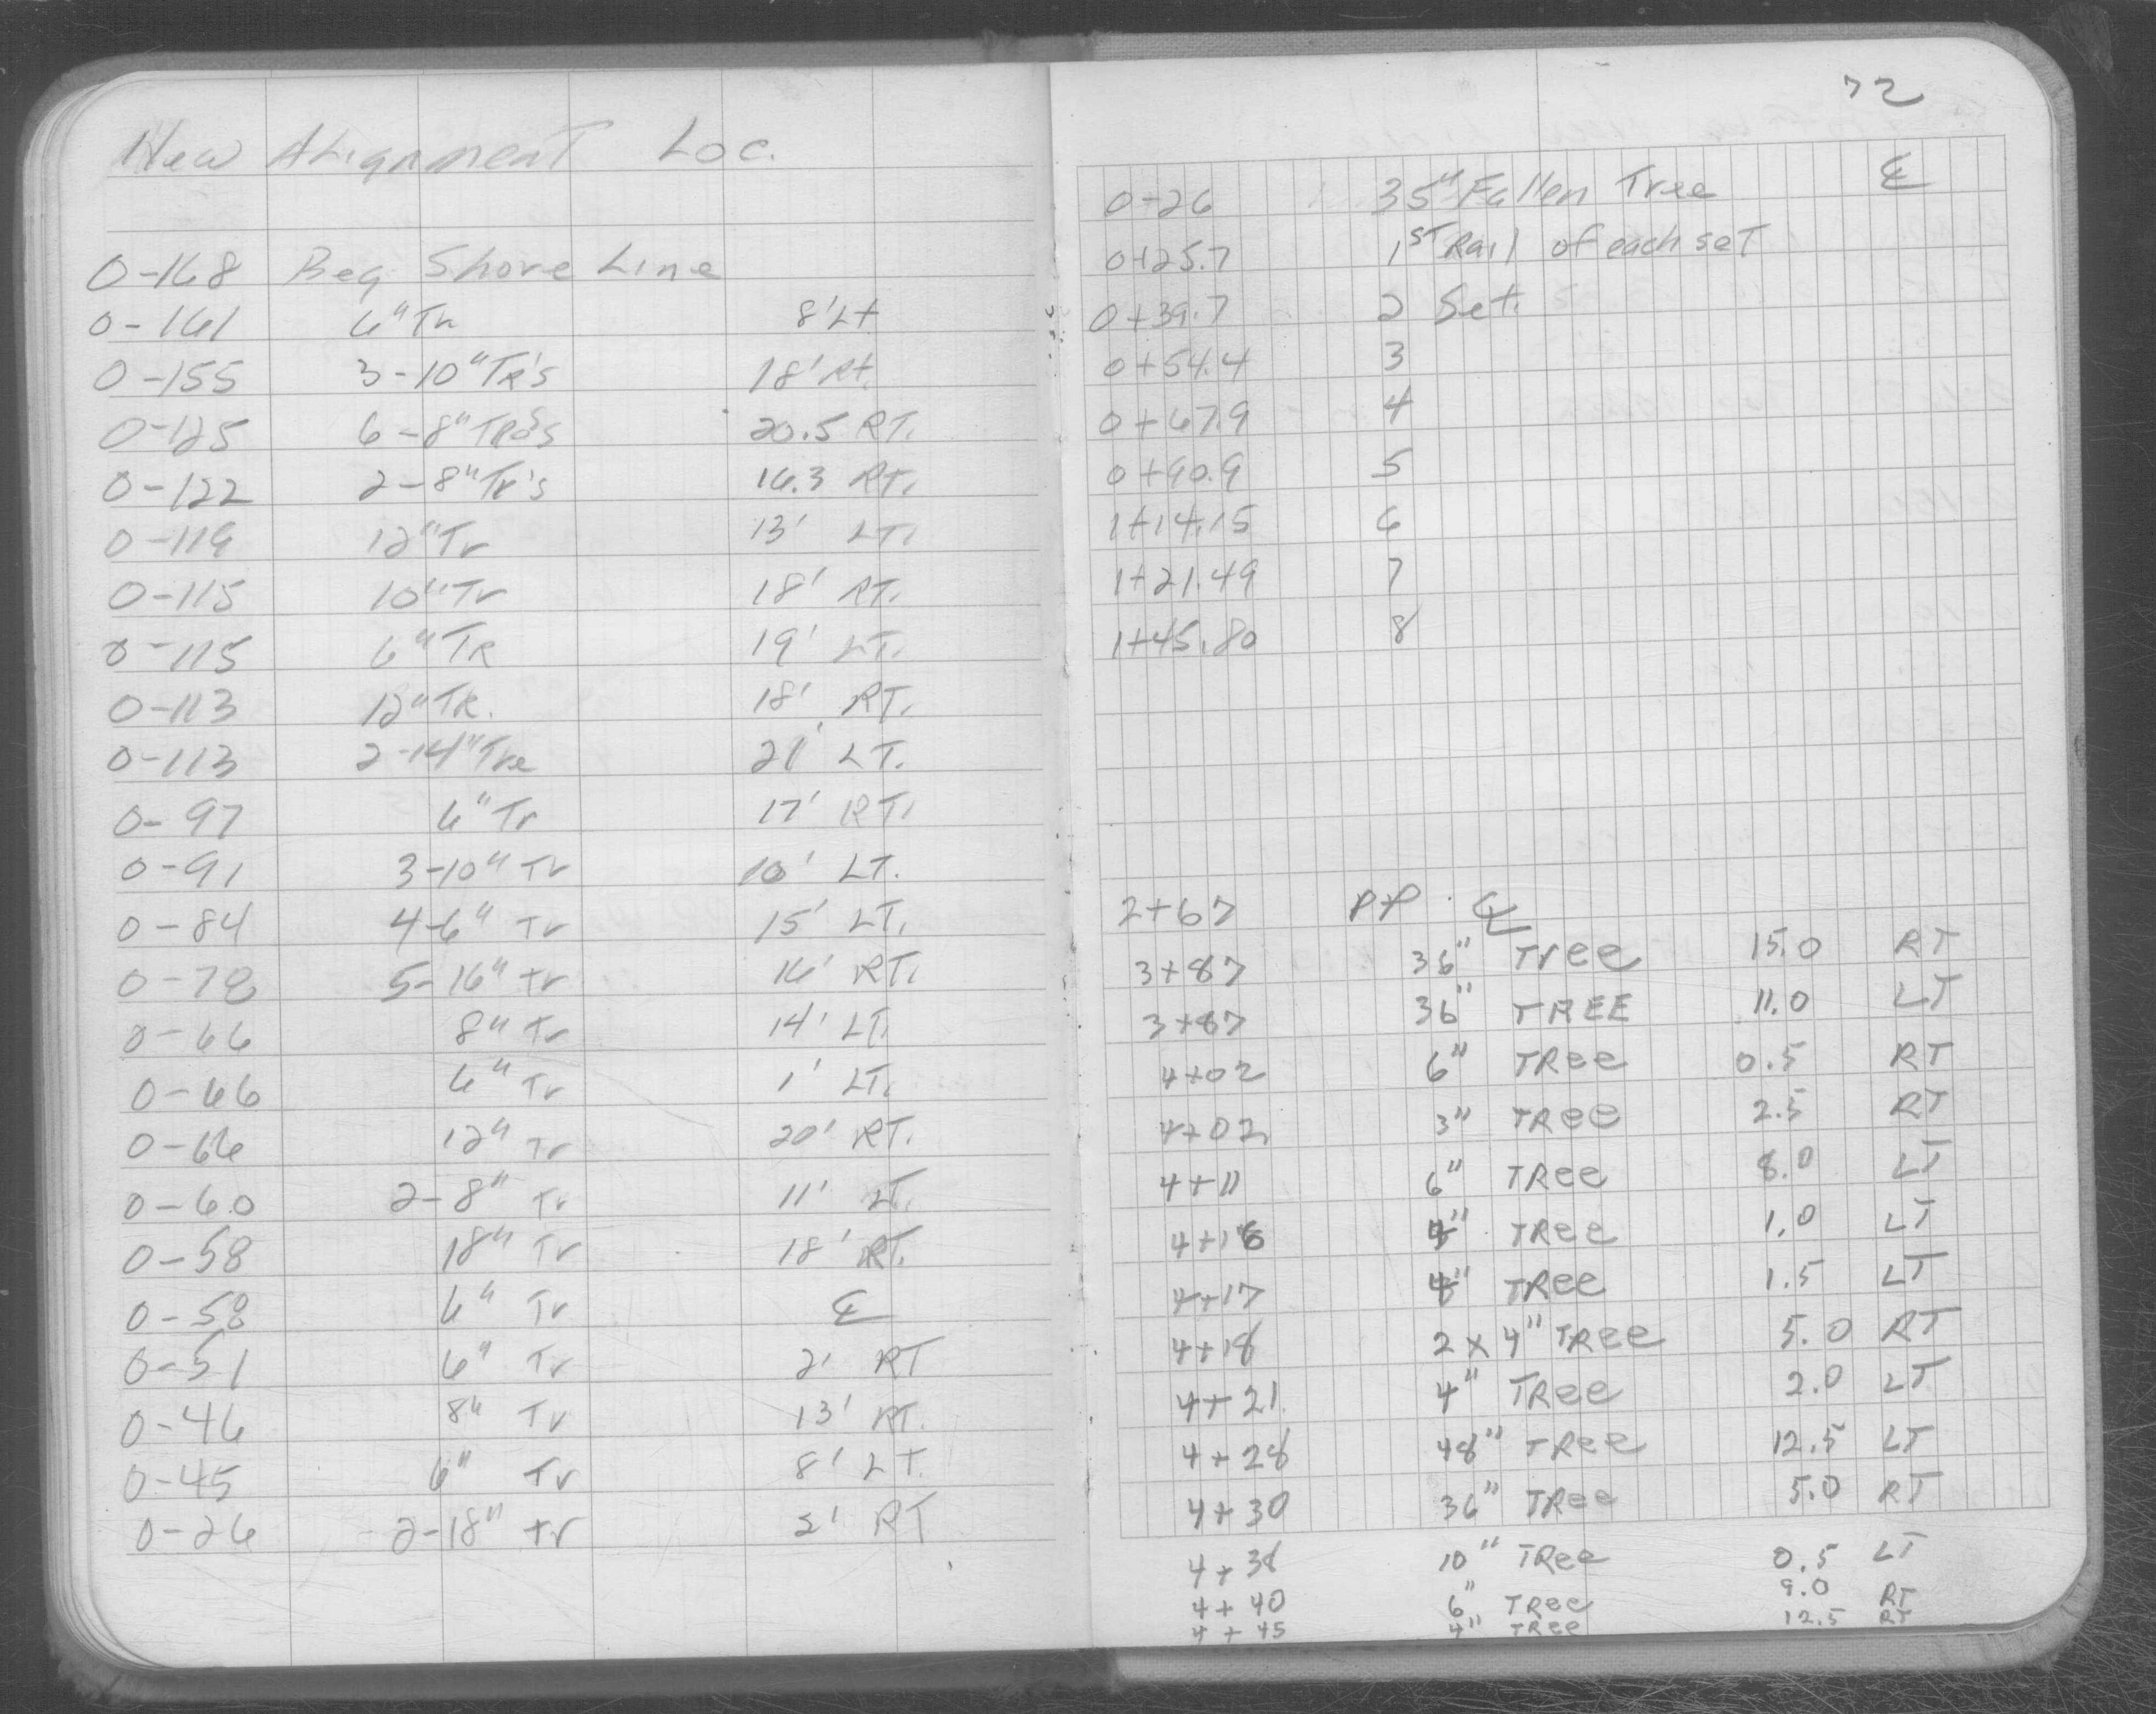 New Alignment Loc.
0-168 Beg Shore Line
0-161 6" Tr 8' Lt
0-155 3-10" TR's 18' Rt.
0-125 6-8" 20.5 RT.
0-122 2-8" Tr's 16.3 RT.
0-119 12" Tr 13' LT.
0-115 10" Tr 18' RT.
0-115 6" TR 19' LT.
0-113 12" TR. 18' RT.
0-113 2-14" Tre 21' LT.
0-97 6" Tr 17' RT.
0-91 3-10" Tr 10' LT.
0-84 4-6" Tr 15' LT.
0-78 5-16" tr 16' RT.
0-66 8" Tr 14' LT.
0-66 6" Tr 1' LT.
0-66 12" Tr 20' RT.
0-60 2-8" Tr 11' LT.
0-58 18" Tr 18' RT.
0-58 6" Tr ℄
0-51 6" Tr 2' RT
0-46 8" Tr 13' RT.
0-45 6" Tr 8' LT.
0-26 2-18" tr 2' RT
72
0-26 35" Fallen Tree ℄
0+25.7 1ST Rail of each set
0+39.7 2 Set.
0+54.4 3
0+67.9 4
0+90.9 5
1+14.15 6
1+21.49 7
1+45.80 8
2+67 PP ℄
3+87 36" Tree 15.0 RT
3+87 36" TREE 11.0 LT
4+02 6" TRee 0.5 RT
4+02 3" TRee 2.5 RT
4+11 6" TRee 8.0 LT
4+16 4" TRee 1.0 LT
4+17 4" TRee 1.5 LT
4+18 2x4" TRee 5.0 RT
4+21 4" TRee 2.0 LT
4+28 48" TRee 12.5 LT
4+30 36" TRee 5.0 RT
4+38 10" TRee 0.5 LT
4+40 6" TRee 9.0 RT
4+45 4" TRee 12.5 RT